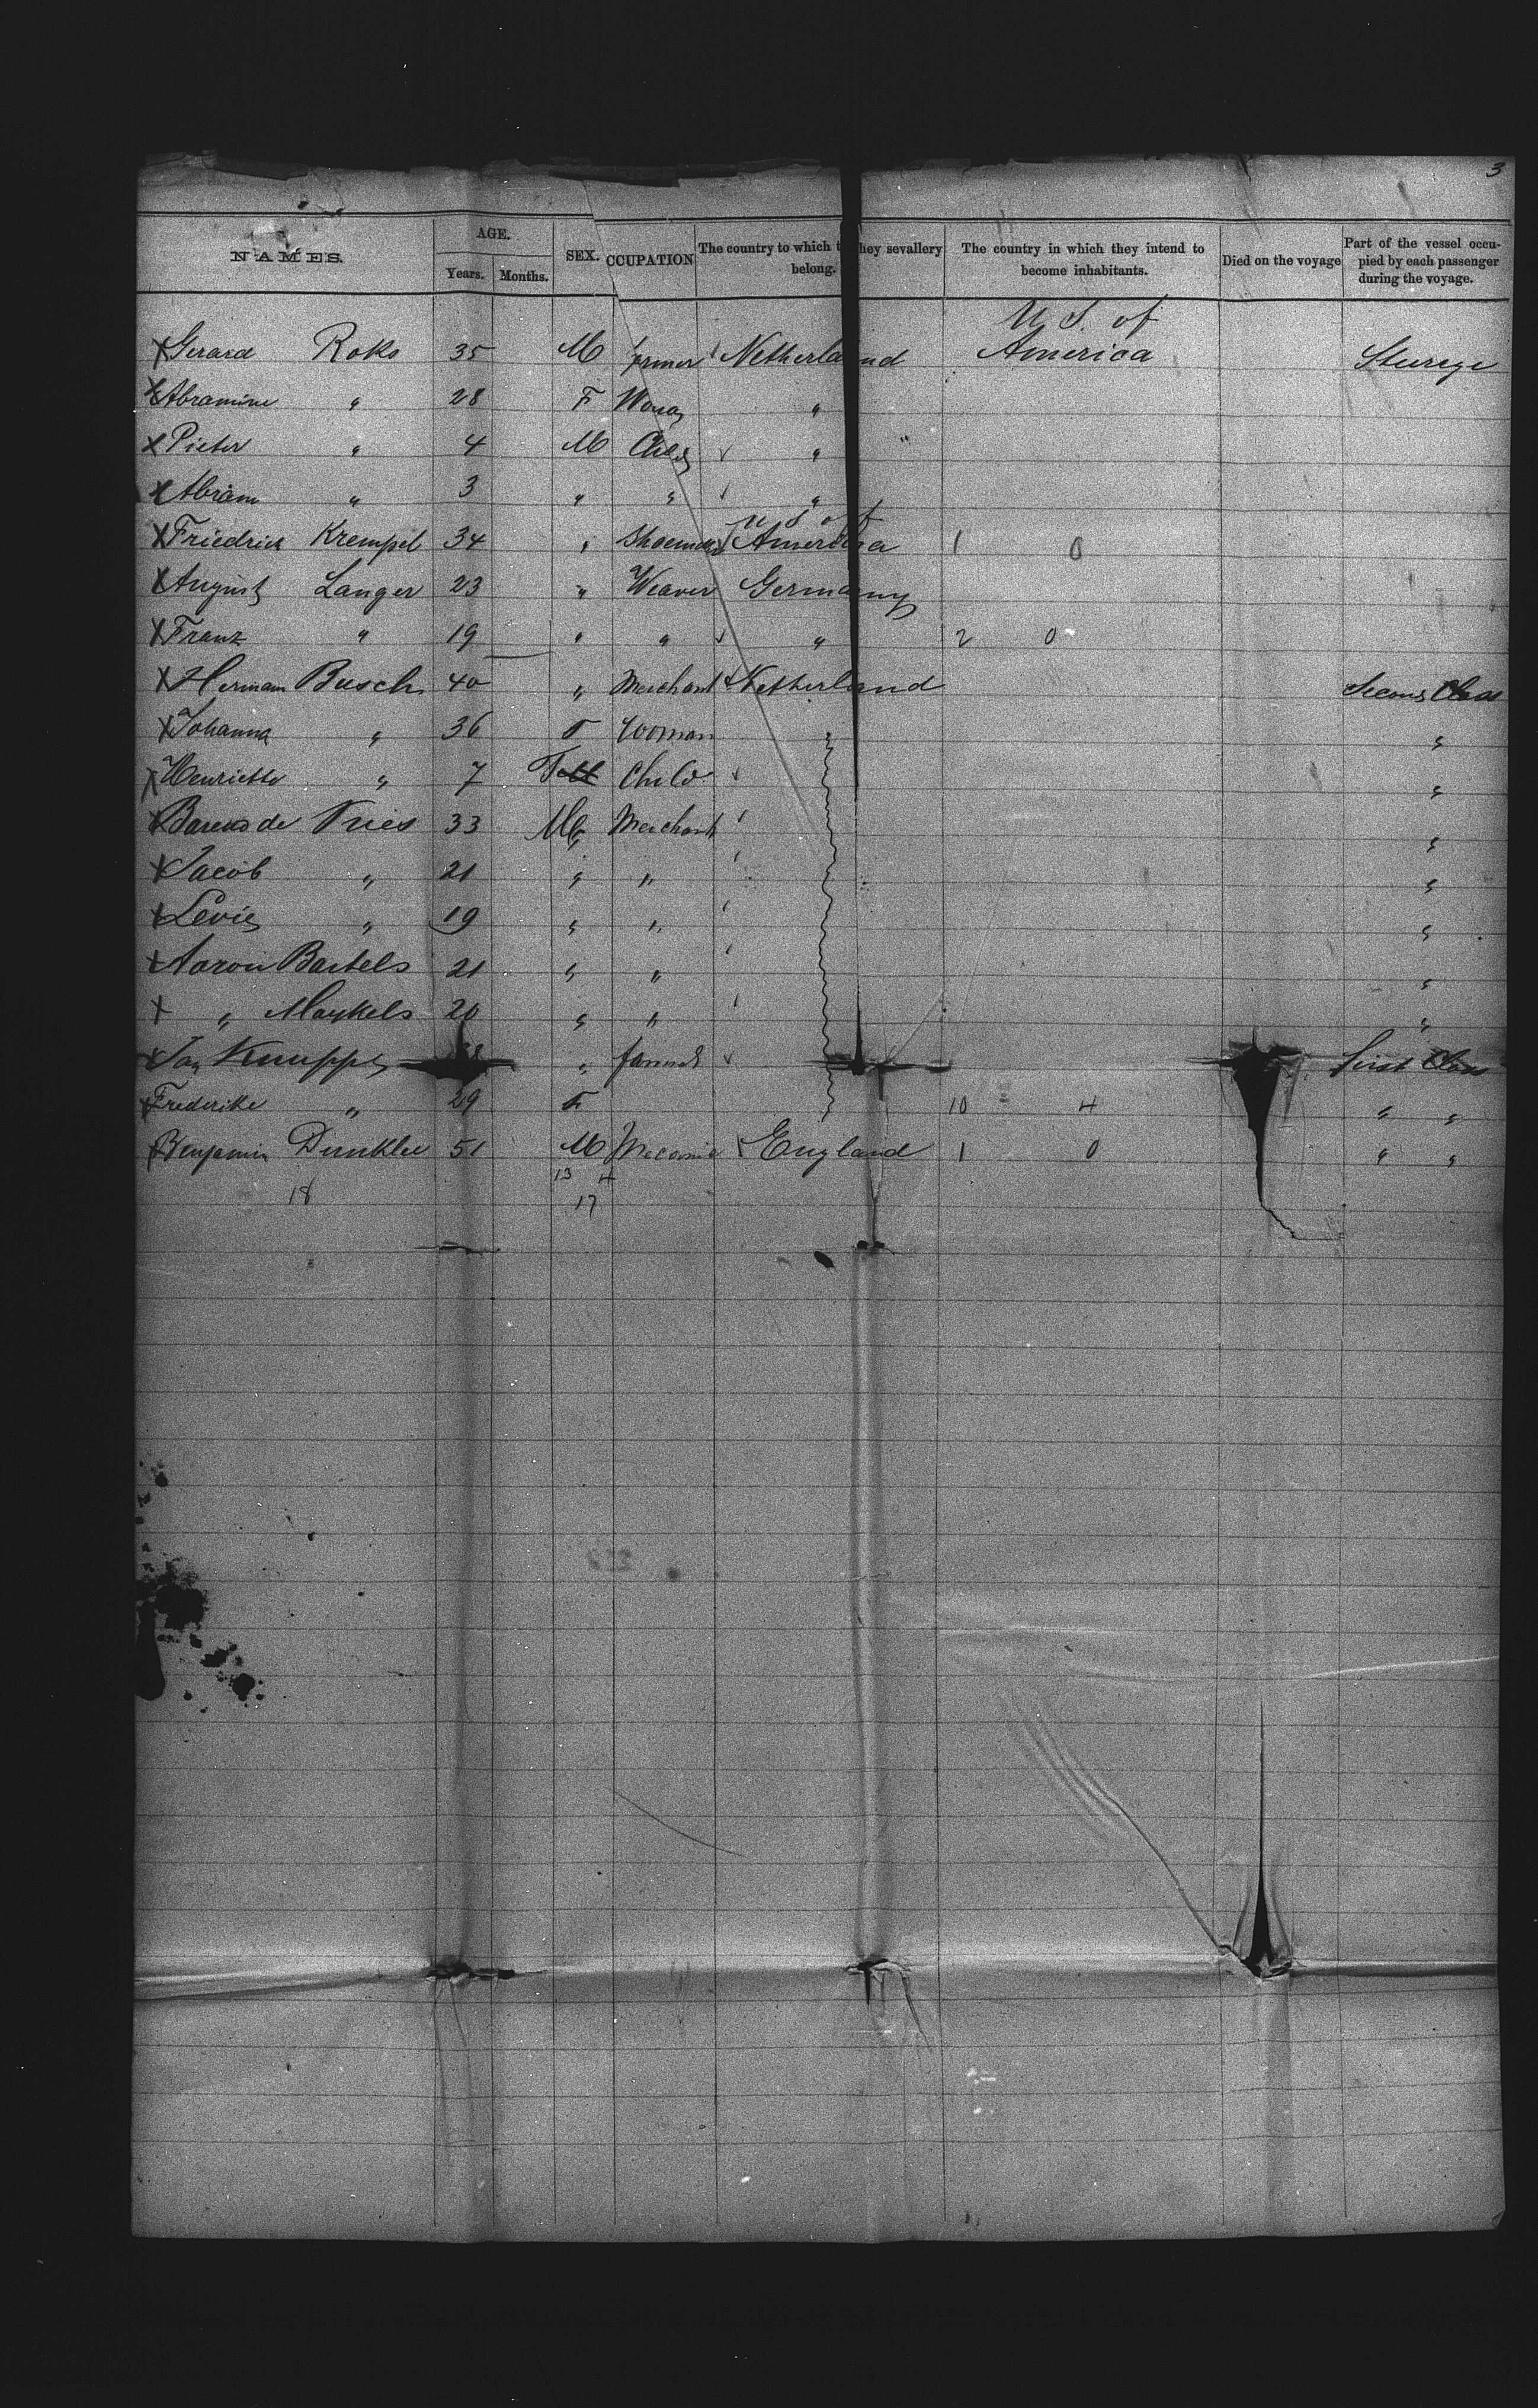 3
NAMES. AGE. Years. Months. SEX. OCCUPATION The country to which they sevallery belong. The country in which they intend to become inhabitants. Died on the voyage Part of the vessel occupied by each passenger during the voyage.
U S. of
X Gerard Roks 35 M farmer Netherland America Steerage
X Abramine " 28 F Woman "
X Pieter " 4 M Child " "
X Abram " 3 " " "
U S of
X Friedrich Krempel 34 " Shoemaker America 1 0
X August Langer 23 " Weaver Germany
X Franz " 19 " " " 2 0
X Herman Busch 40 " Merchant Netherland Second Class
X Johanna " 36 F Woman " "
X Henriette " 7 F Child "
X Barend de Vries 33 M Merchant "
X Jacob " 21 " " "
X Levie " 19 " " "
X Aaron Bartels 21 " " "
X " Maykels 20 " " "
X Jan Knuppe " farmer First Class
X Frederike " 29 F 10 4 " "
X Benjamin Dunklee 51 M Mecanic England 1 0 " "
13 4
18 17